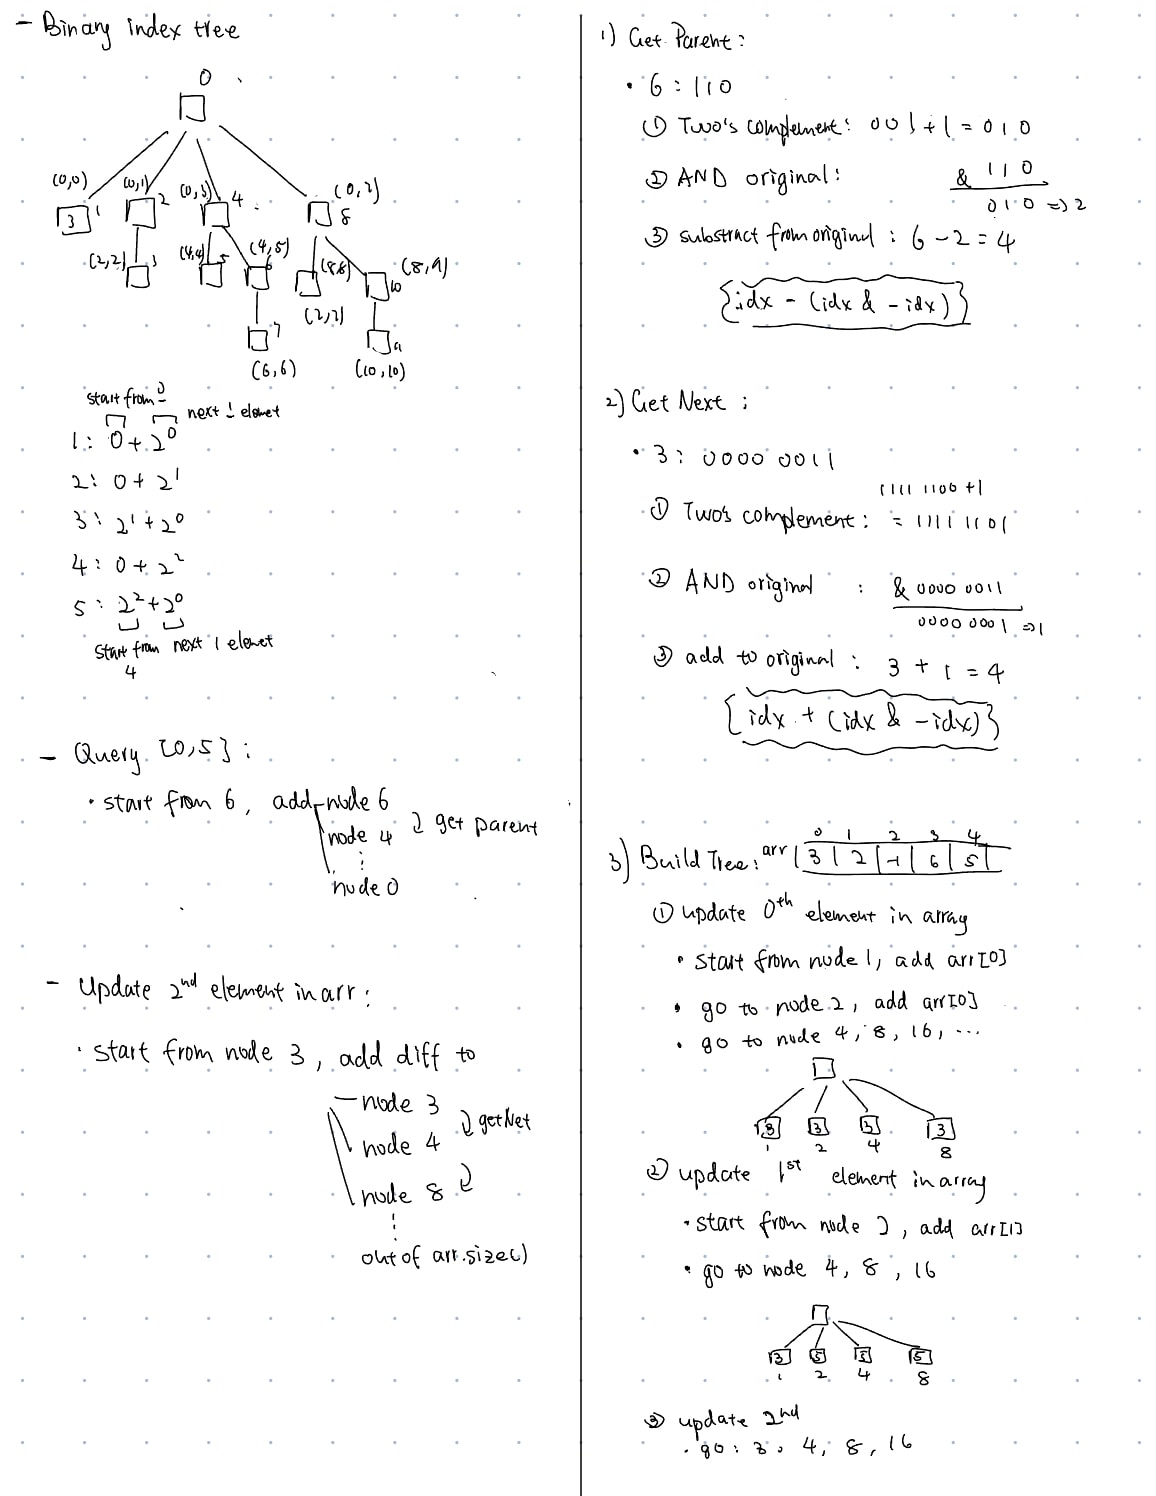 - Binary index tree
0
(0,0) (0,1) (0,3) (0,7)
3 1 2 4 8
(2,2) 3 (4,4) 5 (4,5) 6 (8,8) (8,9) 10
7 (2,2)
(6,6) (10,10)
start from 0
next 1 elemet
1: 0 + 2⁰
2: 0 + 2¹
3: 2¹ + 2⁰
4: 0 + 2²
5: 2² + 2⁰
start from next 1 elemet
4
- Query [0,5]:
• start from 6, add node 6
node 4 get parent
⋮
node 0
- Update 2nd element in arr:
• start from node 3, add diff to
node 3
getNet
node 4
node 8
⋮
out of arr.size()
1) Get Parent:
• 6: 110
① Two's complement: 001 + 1 = 010
② AND original: & 110
010 => 2
③ substract from original: 6 - 2 = 4
{idx - (idx & -idx)}
2) Get Next:
• 3: 0000 0011
1111 1100 + 1
① Two's complement: = 1111 1101
② AND original : & 0000 0011
0000 0001 => 1
③ add to original: 3 + 1 = 4
{idx + (idx & -idx)}
0 1 2 3 4
3) Build Tree: arr | 3 | 2 | -1 | 6 | 5 |
① update 0th element in array
• start from node 1, add arr[0]
• go to node 2, add arr[0]
• go to node 4, 8, 16, ...
3 3 3 3
1 2 4 8
② update 1st element in array
• start from node 2, add arr[1]
• go to node 4, 8, 16
3 5 5 5
1 2 4 8
③ update 2nd
• go: 3, 4, 8, 16